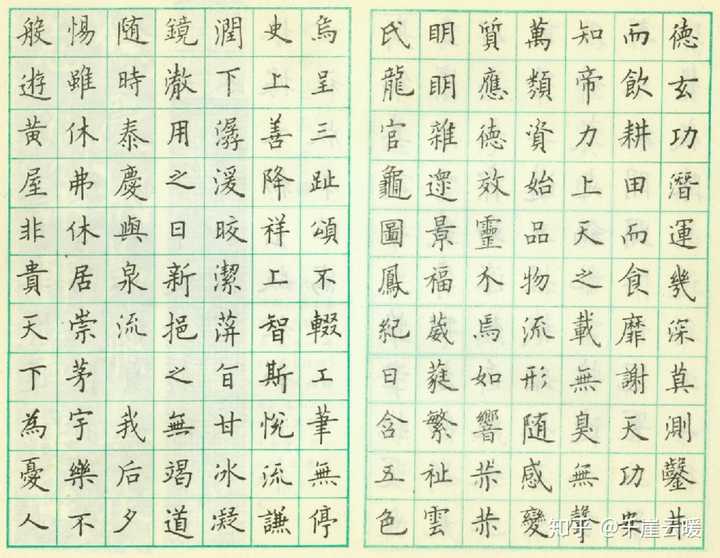 德玄功潛運幾深莫測鑿井
而飲耕田而食靡謝天功安
知帝力上天之載無臭無聲
萬類資始品物流形随感變
質應德效靈介焉如響赫赫
明明雜遝景福葳蕤繁祉雲
氏龍官龜圖鳳紀日含五色
烏呈三趾頌不輟工筆無停
史上善降祥上智斯悅流謙
潤下潺湲晈潔蓱旨甘冰凝
鏡澈用之日新挹之無竭道
随時泰慶與泉流 我后夕
惕雖休弗休居崇茅宇樂不
般遊黃屋非貴天下為憂人
知乎 @千崖云暖